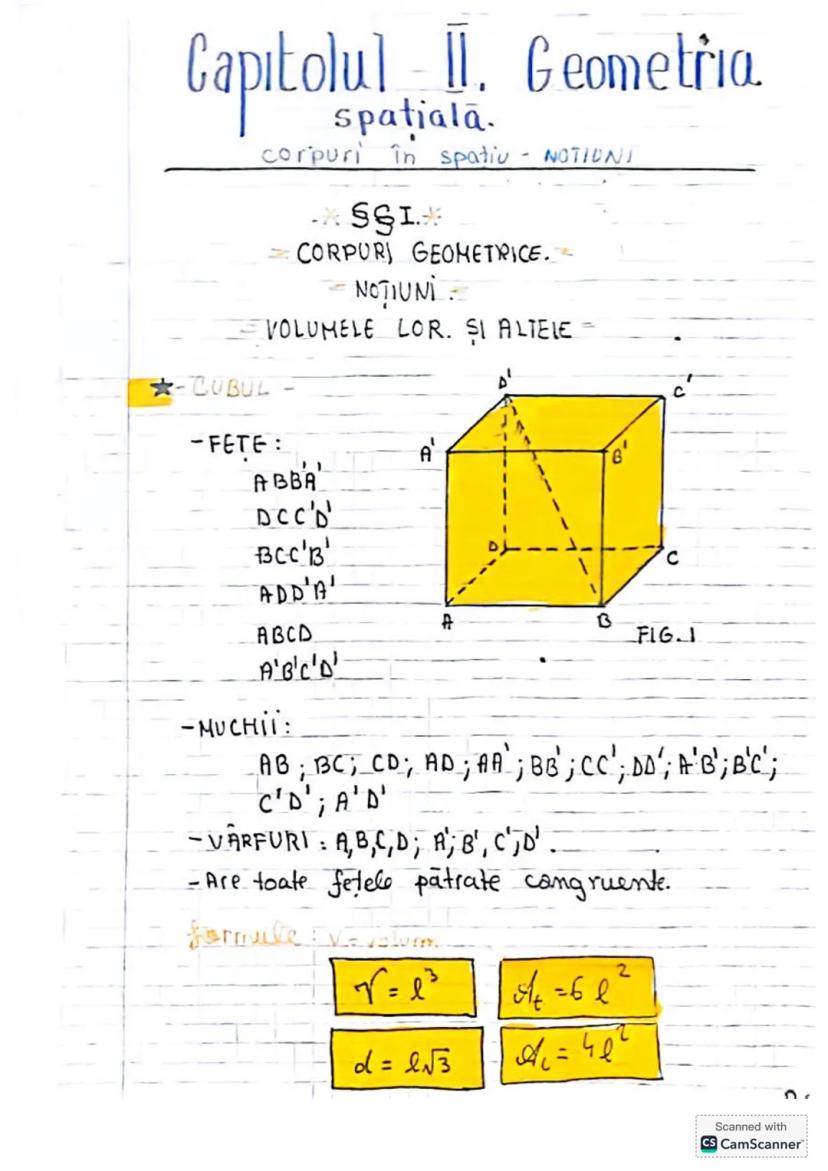 Capitolul II. Geometria
spațială.
corpuri în spațiu - NOȚIUNI
* §§I.*
= CORPURI GEOMETRICE. =
= NOȚIUNI =
= VOLUMELE LOR. ȘI ALTELE =
★ - CUBUL -
- FEȚE:
ABB'A'
DCC'D'
BCC'B'
ADD'A'
ABCD
A'B'C'D'
D'
C'
A'
B'
D
C
A
B
FIG. 1
- MUCHII:
AB; BC; CD; AD; AA'; BB'; CC'; DD'; A'B'; B'C';
C'D'; A'D'
- VÂRFURI: A,B,C,D; A'; B', C'; D'.
- Are toate fețele pătrate congruente.
formule: V=volum
V = l³
𝒜t = 6 l²
d = l√3
𝒜l = 4l²
Scanned with
CS CamScanner